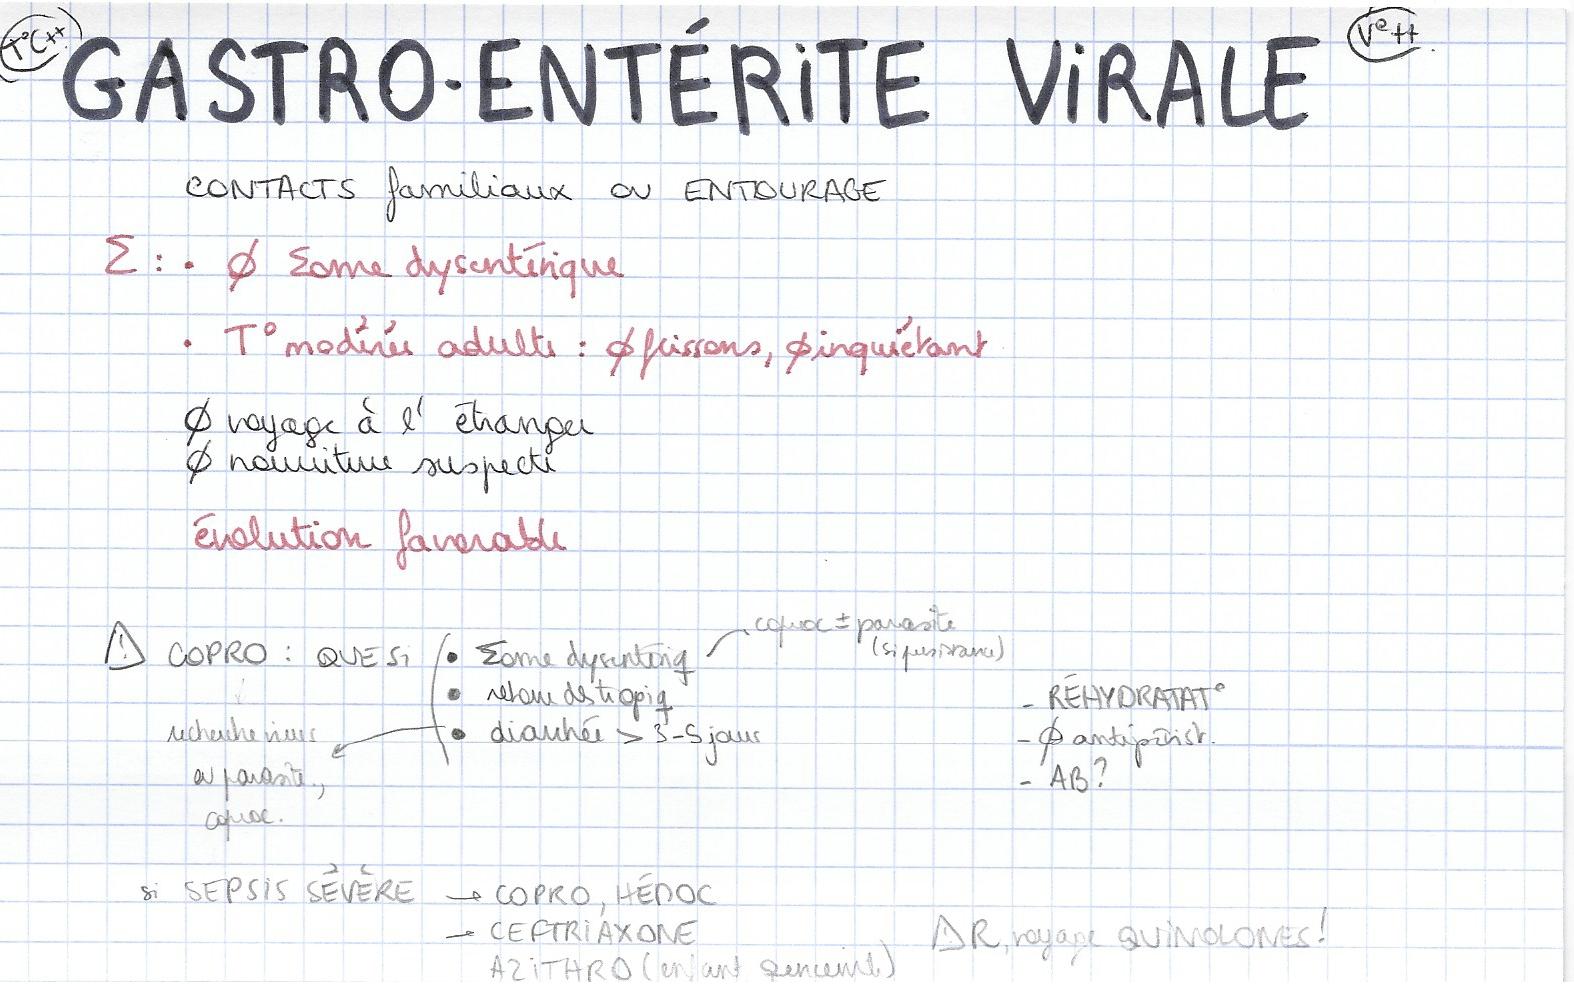 T°C++
GASTRO-ENTÉRITE VIRALE
Ve ++
CONTACTS familiaux ou ENTOURAGE
Σ : • ∅ Σome dysentérique
• T° modérée adulte : ∅ frissons, ∅ inquiétant
∅ voyage à l' étranger
∅ nourriture suspecte
évolution favorable
coproc ± parasite
(si persistance)
⚠ COPRO : QUE Si • Σome dysentériq
• retour des tropiq
• diarrhée > 3-5 jours
recherche virus
ou parasite,
coproc.
- RÉHYDRATAT°
- ∅ antipérist.
- AB?
si SEPSIS SÉVÈRE → COPRO, HÉMOC
→ CEFTRIAXONE
AZITHRO (enfant
⚠ R, voyage QUINOLONES!